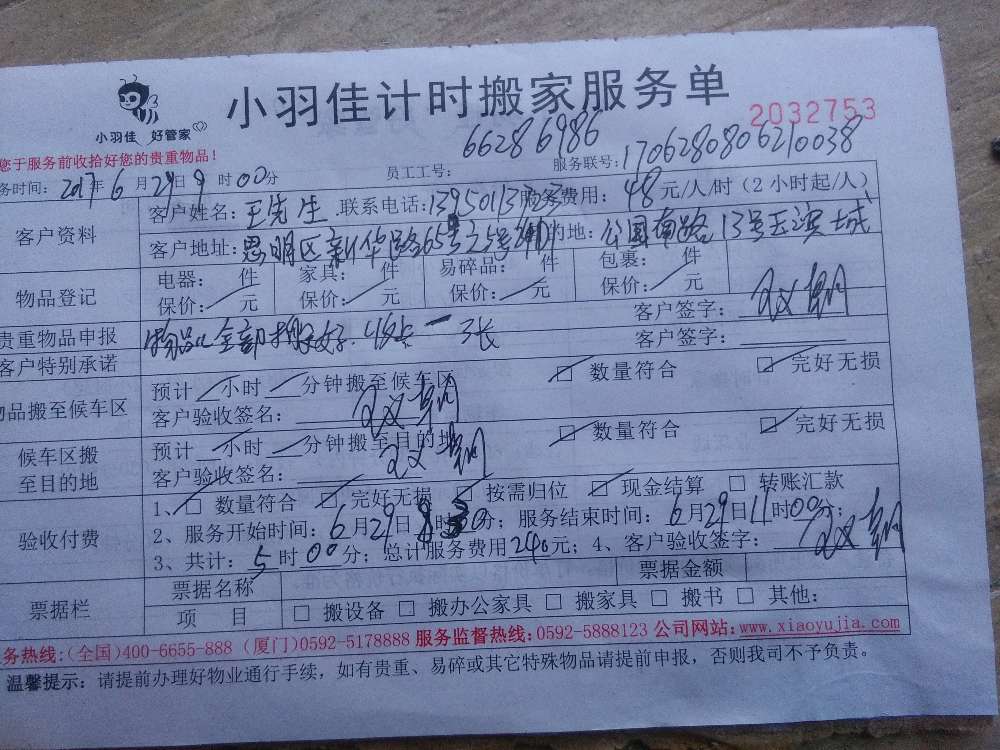 小羽佳计时搬家服务单
小羽佳 好管家
2032753
您于服务前收拾好您的贵重物品！
66286986
务时间：2017年6月29日9时00分 员工工号： 服务联号：1706280806210038
客户资料 客户姓名：王先生 联系电话：13950113323 服务费用：48元/人/时（2小时起/人）
客户地址：思明区新华路65号 的地：公园南路13号玉滨城
物品登记 电器： 件 家具： 件 易碎品： 件 包裹： 件
保价： 元 保价： 元 保价： 元 保价： 元
贵重物品申报 物品全部搬好 客户签字：
客户特别承诺 客户签字：
物品搬至候车区 预计 小时 分钟搬至候车区 □ 数量符合 □ 完好无损
客户验收签名：
候车区搬至目的地 预计 小时 分钟搬至目的地 □ 数量符合 □ 完好无损
客户验收签名：
验收付费 1、□ 数量符合 □ 完好无损 □ 按需归位 □ 现金结算 □ 转账汇款
2、服务开始时间：6月29日8时30分；服务结束时间：6月29日11时00分；
3、共计：5时00分；总计服务费用240元；4、客户验收签字：
票据栏 票据名称 票据金额
项 目 □ 搬设备 □ 搬办公家具 □ 搬家具 □ 搬书 □ 其他：
务热线：(全国)400-6655-888 (厦门)0592-5178888 服务监督热线：0592-5888123 公司网站：www.xiaoyujia.com
温馨提示：请提前办理好物业通行手续，如有贵重、易碎或其它特殊物品请提前申报，否则我司不予负责。